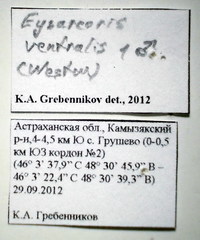 Eysarcoris
ventralis 1 ♂.
(Westw)
K.A. Grebennikov det., 2012
Астраханская обл., Камызякский
р-н,4-4,5 км Ю с. Грушево (0-0,5
км ЮЗ кордон №2)
(46° 3' 37,9" С 48° 30' 45,9" В –
46° 3' 22,4" С 48° 30' 39,3" В)
29.09.2012
К.А. Гребенников